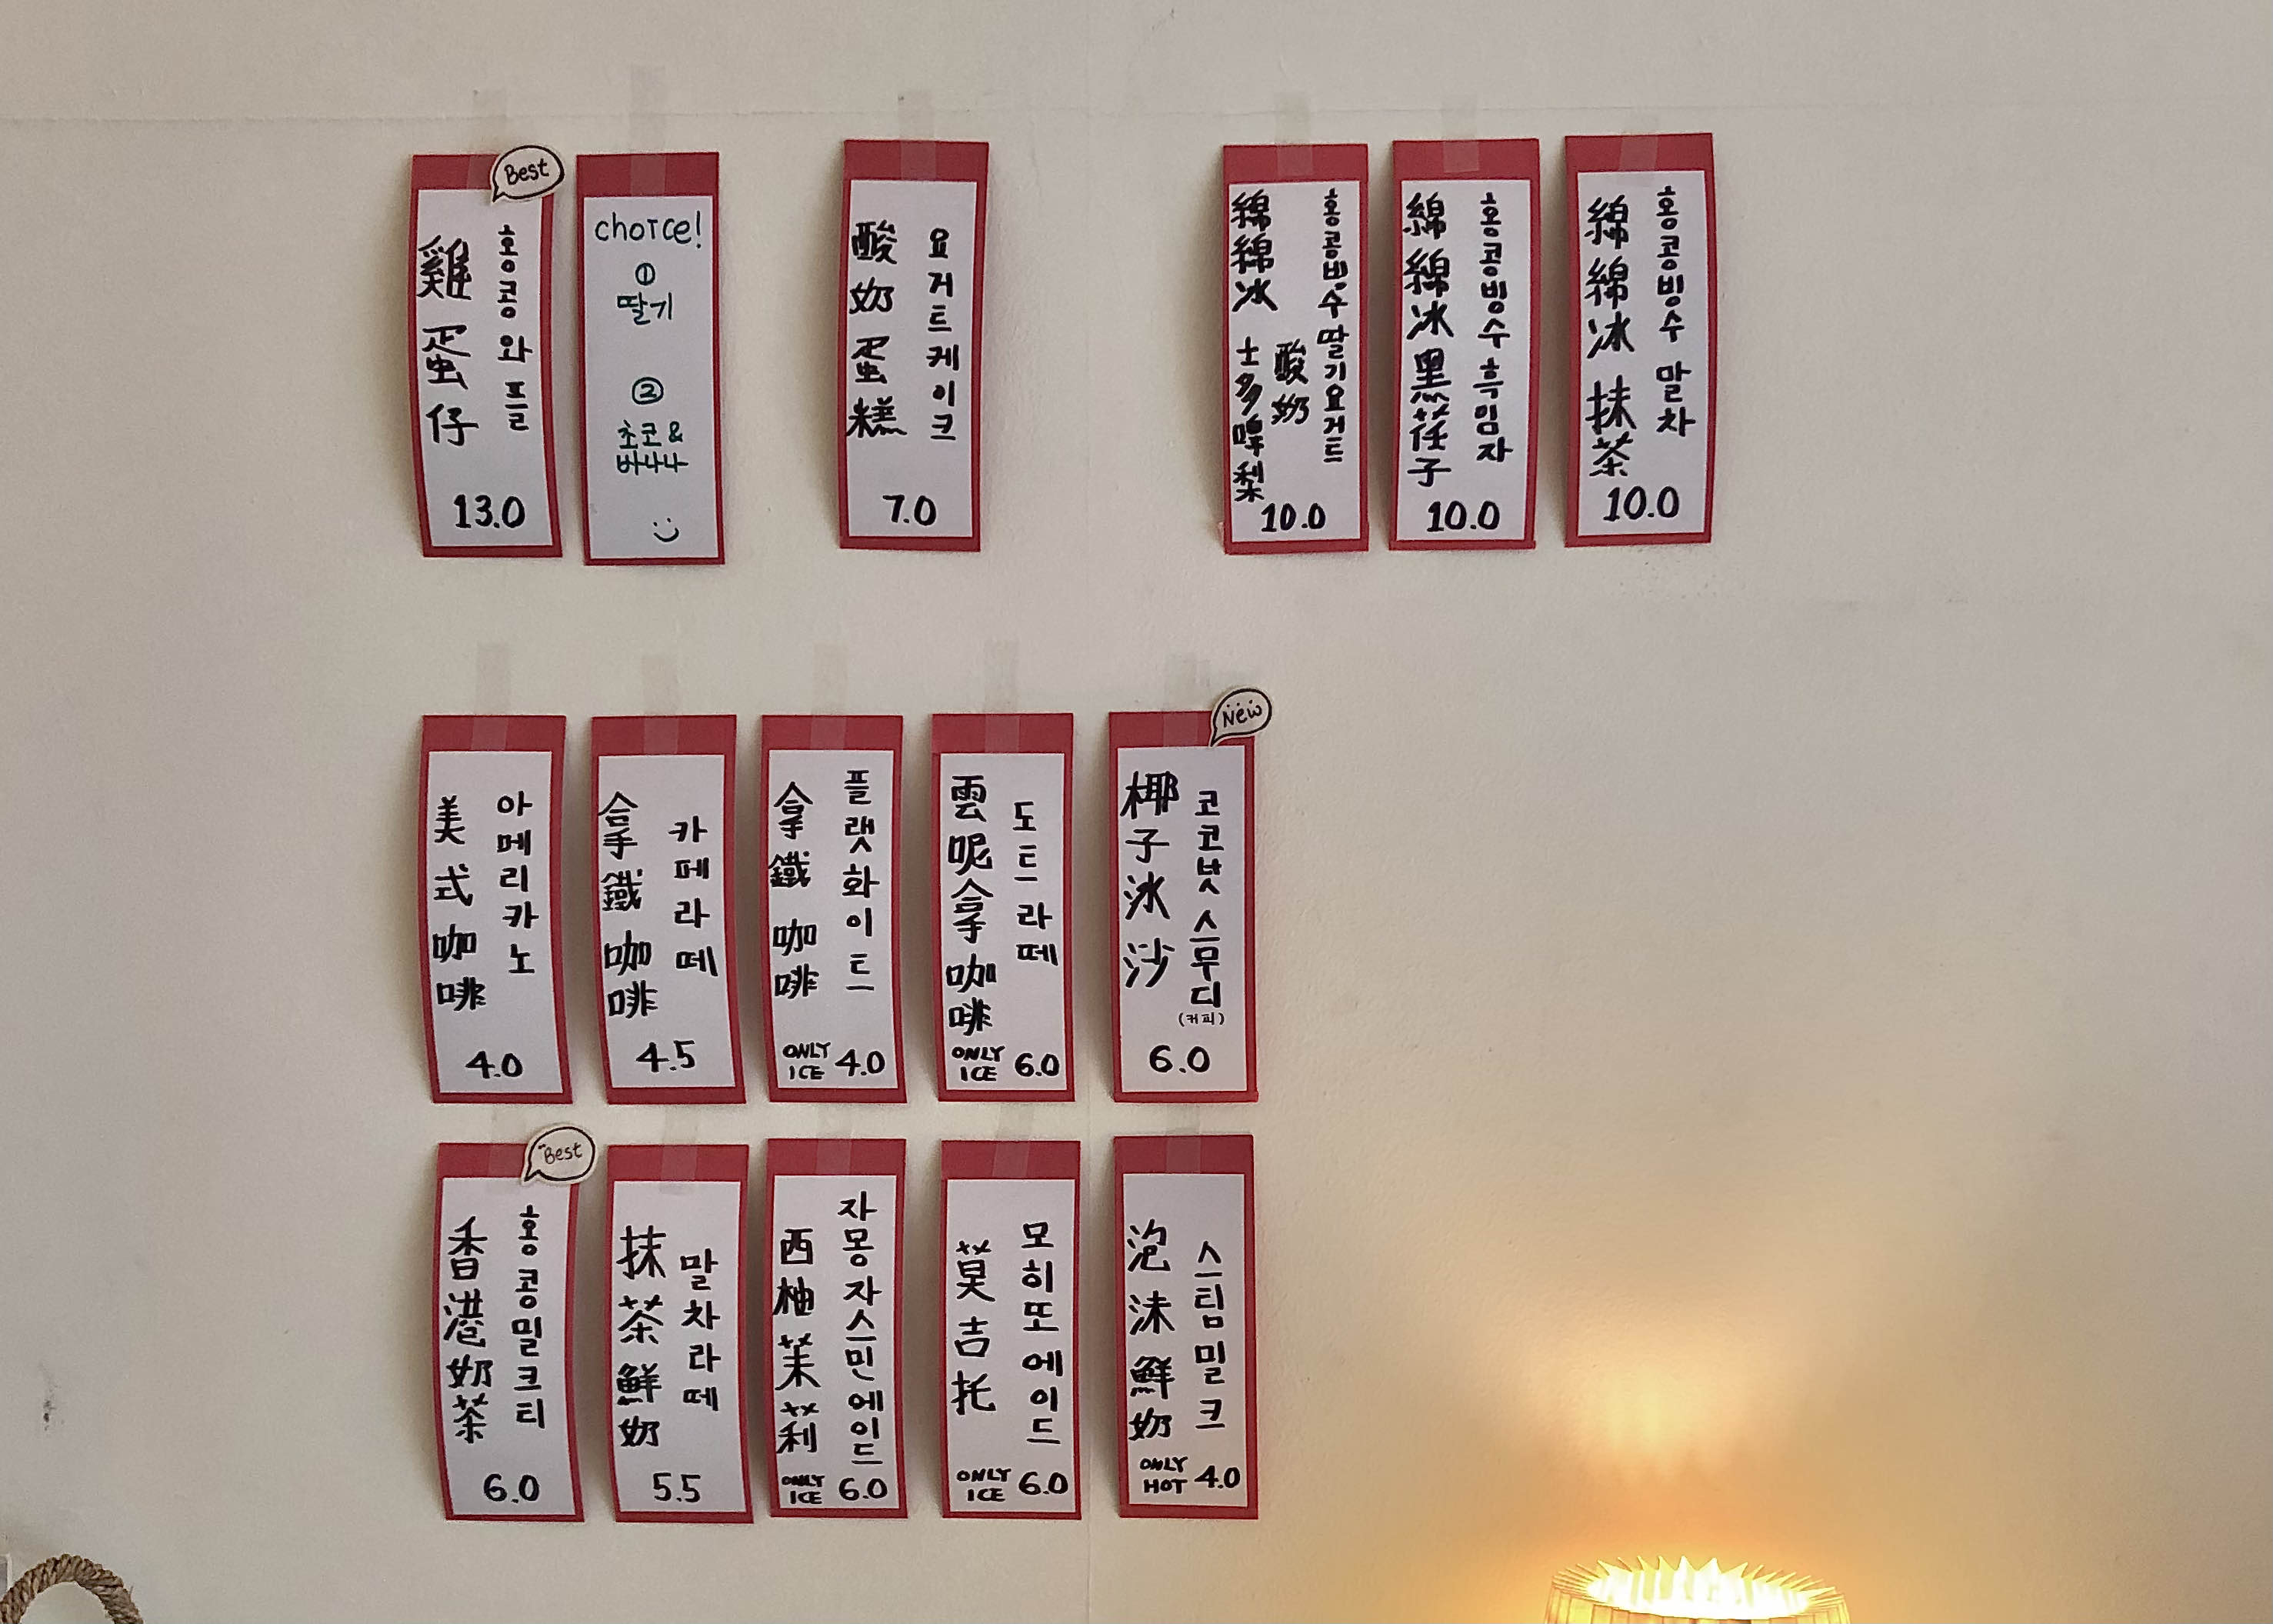 Best
雞蛋仔
홍콩와플
13.0
choice!
①
딸기
②
초코&
바나나
酸奶蛋糕
요거트케이크
7.0
綿綿冰 士多啤梨
酸奶
홍콩빙수 딸기요거트
10.0
綿綿冰黑荏子
홍콩빙수 흑임자
10.0
綿綿冰 抹茶
홍콩빙수 말차
10.0
美式咖啡
아메리카노
4.0
拿鐵咖啡
카페라떼
4.5
拿鐵咖啡
플랫화이트
ONLY
ICE
4.0
雲呢拿咖啡
도트라떼
ONLY
ICE
6.0
New
椰子冰沙
코코넛 스무디
(커피)
6.0
Best
香港奶茶
홍콩밀크티
6.0
抹茶鮮奶
말차라떼
5.5
西柚茉莉
자몽자스민에이드
ONLY
ICE
6.0
莫吉托
모히또에이드
ONLY
ICE
6.0
泡沫鮮奶
스팀밀크
ONLY
HOT
4.0